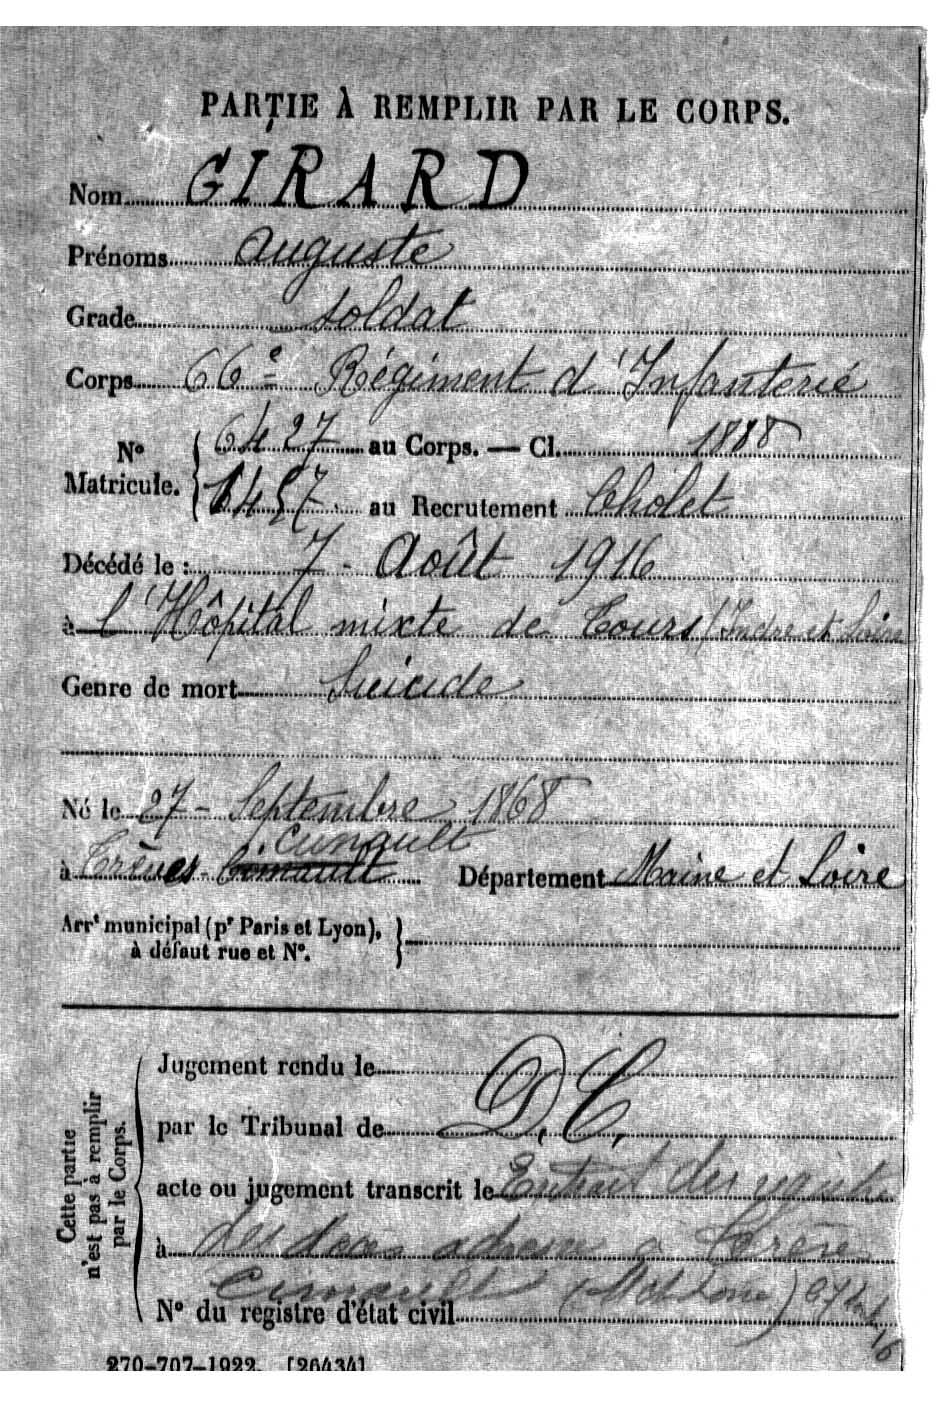 PARTIE À REMPLIR PAR LE CORPS.
Nom GIRARD
Prénoms Auguste
Grade Soldat
Corps 66e Régiment d'Infanterie
No Matricule. { 6427 au Corps. — Cl. 1888
1457 au Recrutement Cholet
Décédé le : 7 - Août 1916
à l'Hôpital mixte de Tours (Indre et Loire
Genre de mort Suicide
Né le 27 - Septembre 1868
Cunault
à Trèves - Cunault Département Maine et Loire
Arrt municipal (pr Paris et Lyon), à défaut rue et No. }
Cette partie n'est pas à remplir par le Corps.
Jugement rendu le
par le Tribunal de D. C.
acte ou jugement transcrit le Extrait des
à des
Cunault
No du registre d'état civil
270-707-1922. [26434]